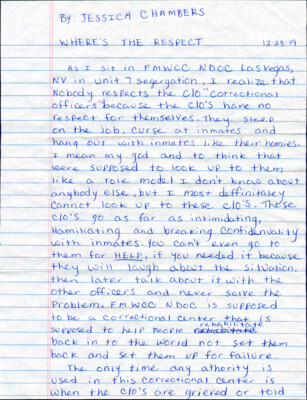 BY: JESSICA CHAMBERS
WHERE'S THE RESPECT 12-23-19
AS I SIT IN FMWCC NDOC LAS VEGAS,
NV IN UNIT J SEGERGATION, I REALIZE THAT
NOBODY RESPECTS THE C/O "CORRECTIONAL
OFFICERS" BECAUSE THE C/O'S HAVE NO
RESPECT FOR THEMSELVES. THEY SLEEP
ON THE JOB, CURSE AT INMATES AND
HANG OUT WITH INMATES LIKE THEIR HOMIES.
I MEAN MY GOD AND TO THINK THAT
WERE SUPPOSED TO LOOK UP TO THEM
LIKE A ROLE MODEL I DON'T KNOW ABOUT
ANYBODY ELSE, BUT I MOST DEFFINITALEY
CANNOT LOOK UP TO THESE C/O'S. THESE
C/O'S GO AS FAR AS INTIMIDATING,
HAMILIATING AND BREAKING CONFIDENUALITY
WITH INMATES. YOU CAN'T EVEN GO TO
THEM FOR HELP, IF YOU NEEDED IT BECAUSE
THEY WILL LAUGH ABOUT THE SITUATION,
THEN LATER TALK ABOUT IT WITH THE
OTHER OFFICERS AND NEVER SOLVE THE
PROBLEM. FMWCC NDOC IS SUPPOSED
TO BE A CORRECTIONAL CENTER THAT IS
SUPPOSED TO HELP PEOPLE rehabilitate
BACK IN TO THE WORLD NOT SET THEM
BACK AND SET THEM UP FOR FAILURE.
THE ONLY TIME ANY ATHORITY IS
USED IN THIS CORRECTIONAL CENTER IS
WHEN THE C/O'S ARE GRIERED OR TOLD